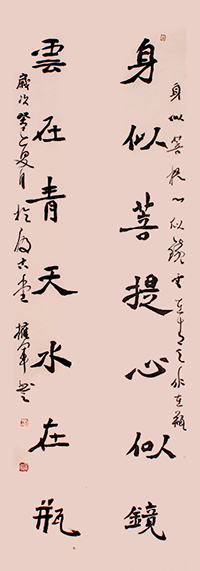 身似菩提心似鏡雲在青天水在瓶
身似菩提心似鏡
雲在青天水在瓶
歲次癸巳夏月於古堂 擁軍書